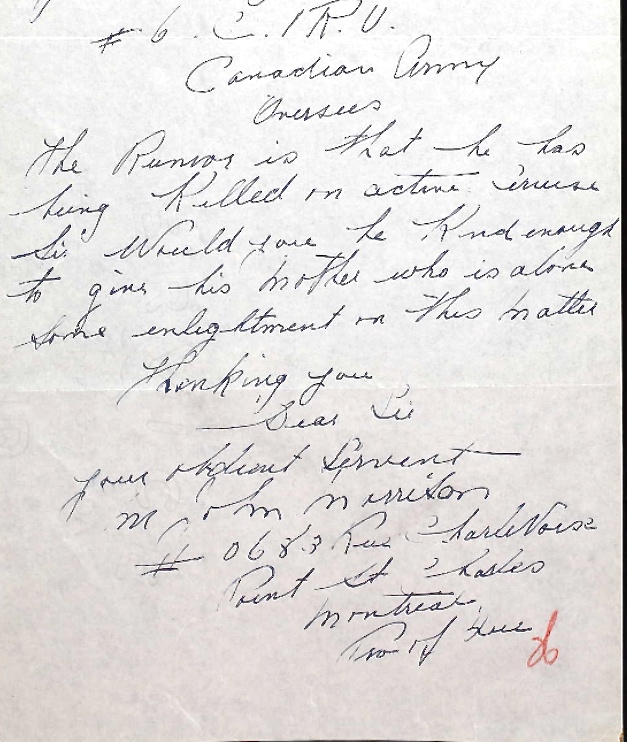 # 6. C. I R. U.
Canadian Army
Oversees
The Rumor is that he has
being Killed on active Cruise
Sir Would you be Kind enough
to give his Mother who is alone
some enlightment on this Matter
Thanking you
Dear Sir
your obdient Servent
M John Morrison
# 0683 Rue CharleVoix
Point St Charles
Montreal
Pro of Que